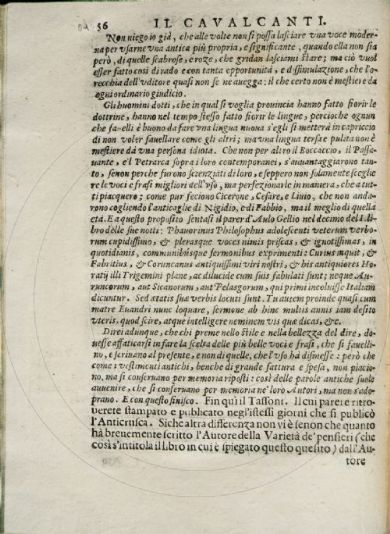 56 IL CAVALCANTI.
Non niego io già, che alle volte non si possa lasciare vna voce moder-
na per vsarne vna antica più propria, e significante, quando ella non sia
però, di quelle scabrose, e roze, che gridan lasciami stare; ma ciò vuol
esser fatto così di rado e con tanta opportunità, e dissimulazione, che l'o-
recchia dell'vditore quasi non se ne auegga: il che certo non è mestiere da
ogni ordinario giudicio.
Gli huomini dotti, che in qual si voglia prouincia hanno fatto fiorir le
dottrine, hanno nel tempo stesso fatto fiorir le lingue, percioche ognun
che fauelli è buono da fare vna lingua nuoua s'egli si metterà in capriccio
di non voler fauellare come gli altri; ma vna lingua tersa e pulita non è
mestiere da vna persona idiota. Che non per altro il Boccaccio, il Passa-
uante, e'l Petrarca sopra i loro contemporanei, s'auuantaggiarono tan-
to, senon perche furono scienziati di loro, e seppero non solamente sceglie
re le voci e frasi migliori dell'vso, ma perfezionarle in maniera, che a tut-
ti piacquero; come pur fecion Cicerone, Cesare, e Liuio, che non anda-
rono cogliendo l'anticaglie di Nigidio, e di Fabbio, ma il meglio di quella
età. E a questo proposito sentasi il parer d'Aulo Gellio nel decimo del Li-
bro delle sue notti: Phauorinus Philosophus adolescenti veterum verbo-
rum cupidissimo, & plerasque voces nimis priscas, & ignotissimas, in
quotidianis, communibusque sermonibus exprimenti: Curius inquit, &
Fabritius, & Coruncanus antiquissimi viri nostri, & his antiquiores Ho-
ratij illi Trigemini plane, ac dilucide cum suis fabulati sunt; neque Au-
runcorum, aut Sicanorum, aut Pelasgorum, qui primi incoluisse Italiam
dicuntur. Sed ætatis suæ verbis locuti sunt. Tu autem proinde quasi cum
matre Euandri nunc loquare, sermone ab hinc multis annis iam desito
vteris, quod scire, atque intelligere neminem vis que dicas, &c.
Direi adunque, che chi preme nello stile e nella bellezza del dire, do-
uesse affaticarsi in fare la scelta delle più belle voci e frasi, che si fauelli-
no, e scriuano al presente, e non di quelle, che l'vso hà dismesse: però che
come i vestimenti antichi, benche di grande fattura e spesa, non piacio-
no, ma si conseruano per memoria riposti: così delle parole antiche suole
auuenire, che si conseruano per memoria ne' loro Autori, ma non s'ado-
prano. E con questo finisco. Fin quì il Tassoni. Il cui parere ritro-
uerete stampato e publicato negl'istessi giorni che si publicò
l'Anticrusca. Siche altra differenza non vi è senon che quanto
hà breuemente scritto l'Autore della Varietà de' pensieri (che
così s'intitola il libro in cui è spiegato questo quesito) dall'Au-
tore